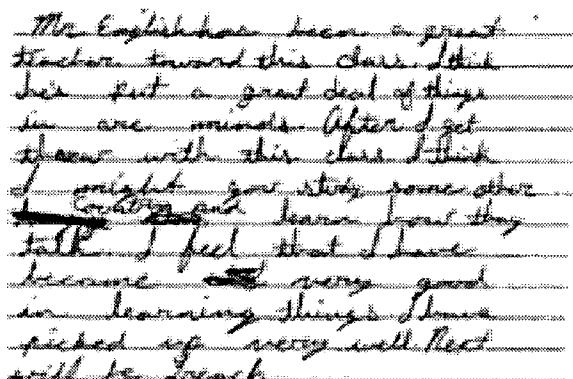 Mr. English has been a great
teacher toward this class. I think
he's put a great deal of things
in are minds. After I get
threw with this class I think
I might gow study some other
country and learn how they
talk. I feel that I have
become very good
in learning things I have
picked up very well. Next
will be French